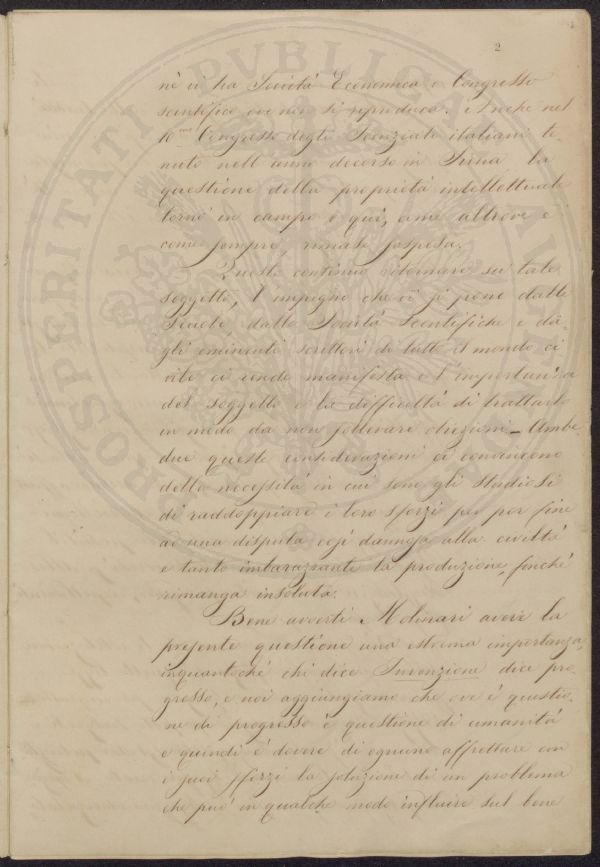 2
nè vi ha Società Economica o Congresso
scientifico ove non si riproduca. Anche nel
10mo Congresso degli Scienziati italiani te-
nuto nell'anno decorso in Siena la
questione della proprietà intellettuale
tornò in campo e qui, come altrove e
come sempre, rimase sospesa.
Questo continuo ritornare su tale
soggetto, l'impegno che vi si pone dalle
Scuole, dalle Società Scentifiche e da-
gli eminenti scrittori di tutto il mondo ci
vile ci rende manifesta e l'importanza
del soggetto e la difficoltà di trattarlo
in modo da non sollevare obiezioni_ Ambe
due queste considerazioni ci convincono
della necessità in cui sono gli studiosi
di raddoppiare i loro sforzi per por fine
ad una disputa così dannosa alla civiltà
e tanto imbarazzante la produzione, finchè
rimanga insoluta.
Bene avvertì Molinari avere la
presente questione una estrema importanza,
inquantochè chi dice Invenzione dice pro-
gresso, e noi aggiungiamo che ove è questio-
ne di progresso è questione di umanità
e quindi è dovere di ognuno affrettare con
i suoi sforzi la soluzione di un problema
che può in qualche modo influire sul bene
PROSPERITATI PVBLICAE